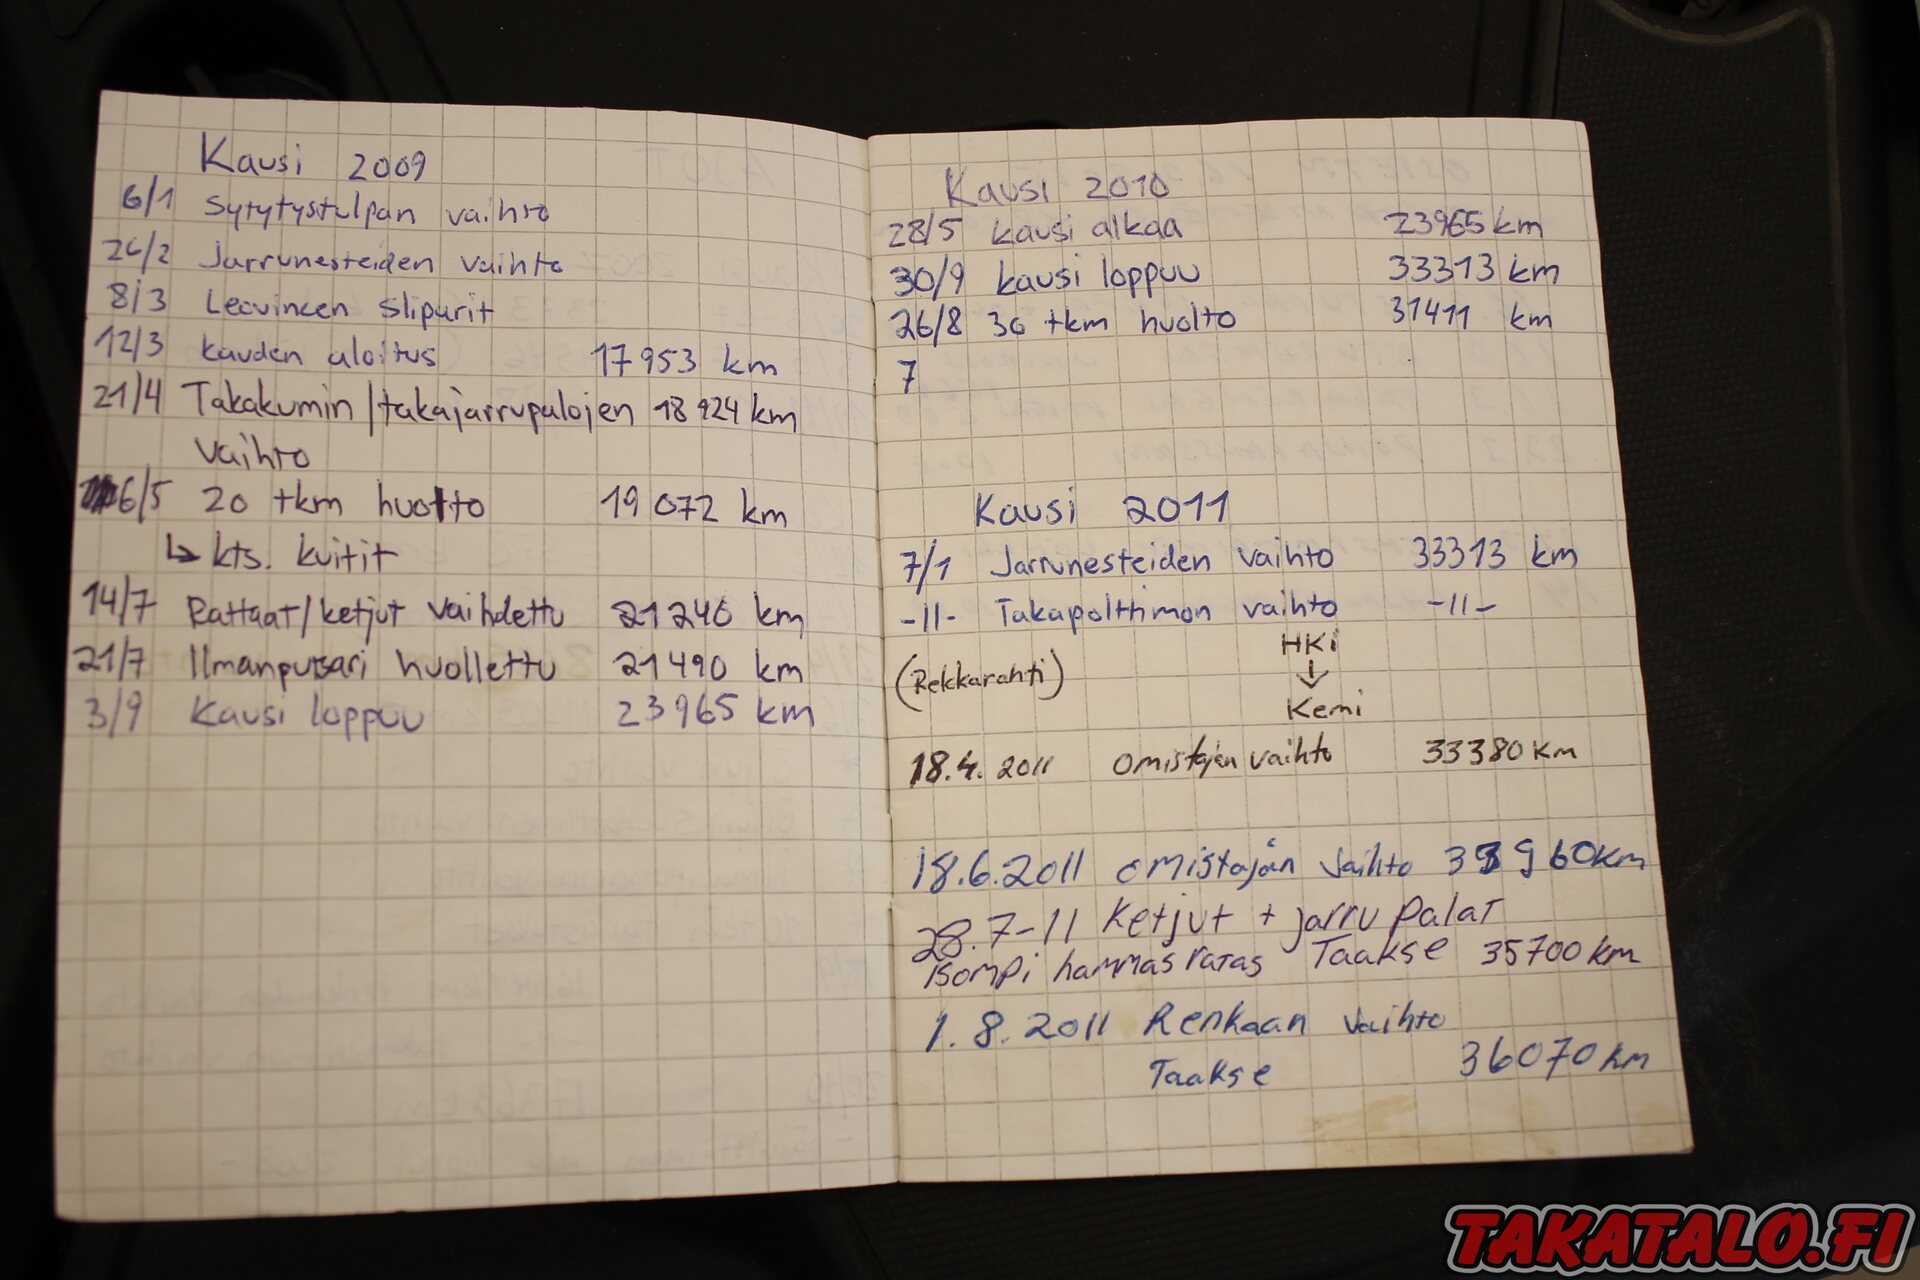 Kausi 2009
6/1 Sytytystulpan vaihto
26/2 Jarrunesteiden vaihto
8/3 Leovincen sliparit
12/3 kauden aloitus 17953 km
21/4 Takakumin/takajarrupalojen 18924 km
vaihto
6/5 20 tkm huolto 19072 km
↳ kts. kuitit
14/7 Rattaat/ketjut vaihdettu 21240 km
21/7 Ilmanpussari huollettu 21490 km
3/9 Kausi loppuu 23965 km
Kausi 2010
28/5 kausi alkaa 23965 km
30/9 kausi loppuu 33313 km
26/8 30 tkm huolto 31411 km
7
Kausi 2011
7/1 Jarrunesteiden vaihto 33313 km
-11- Takapolttimon vaihto -11-
HKi
(Rekkarahti) ↓
Kemi
18.4. 2011 omistajan vaihto 33380 km
18.6.2011 omistajan vaihto 33960km
28.7-11 Ketjut + jarru palat
isompi hammasratas Taakse 35700 km
1.8.2011 Renkaan vaihto
Taakse 36070 km
TAKATALO.FI